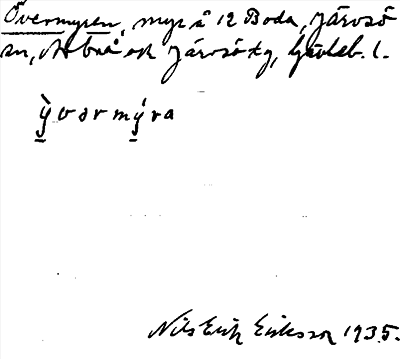 Övermyren, myr å 12 Boda, Järvsö
sn, Arbrå och Järvsö tg, Gävleb. l.
ỳvərmýra
Nils Erik Eriksson 1935.